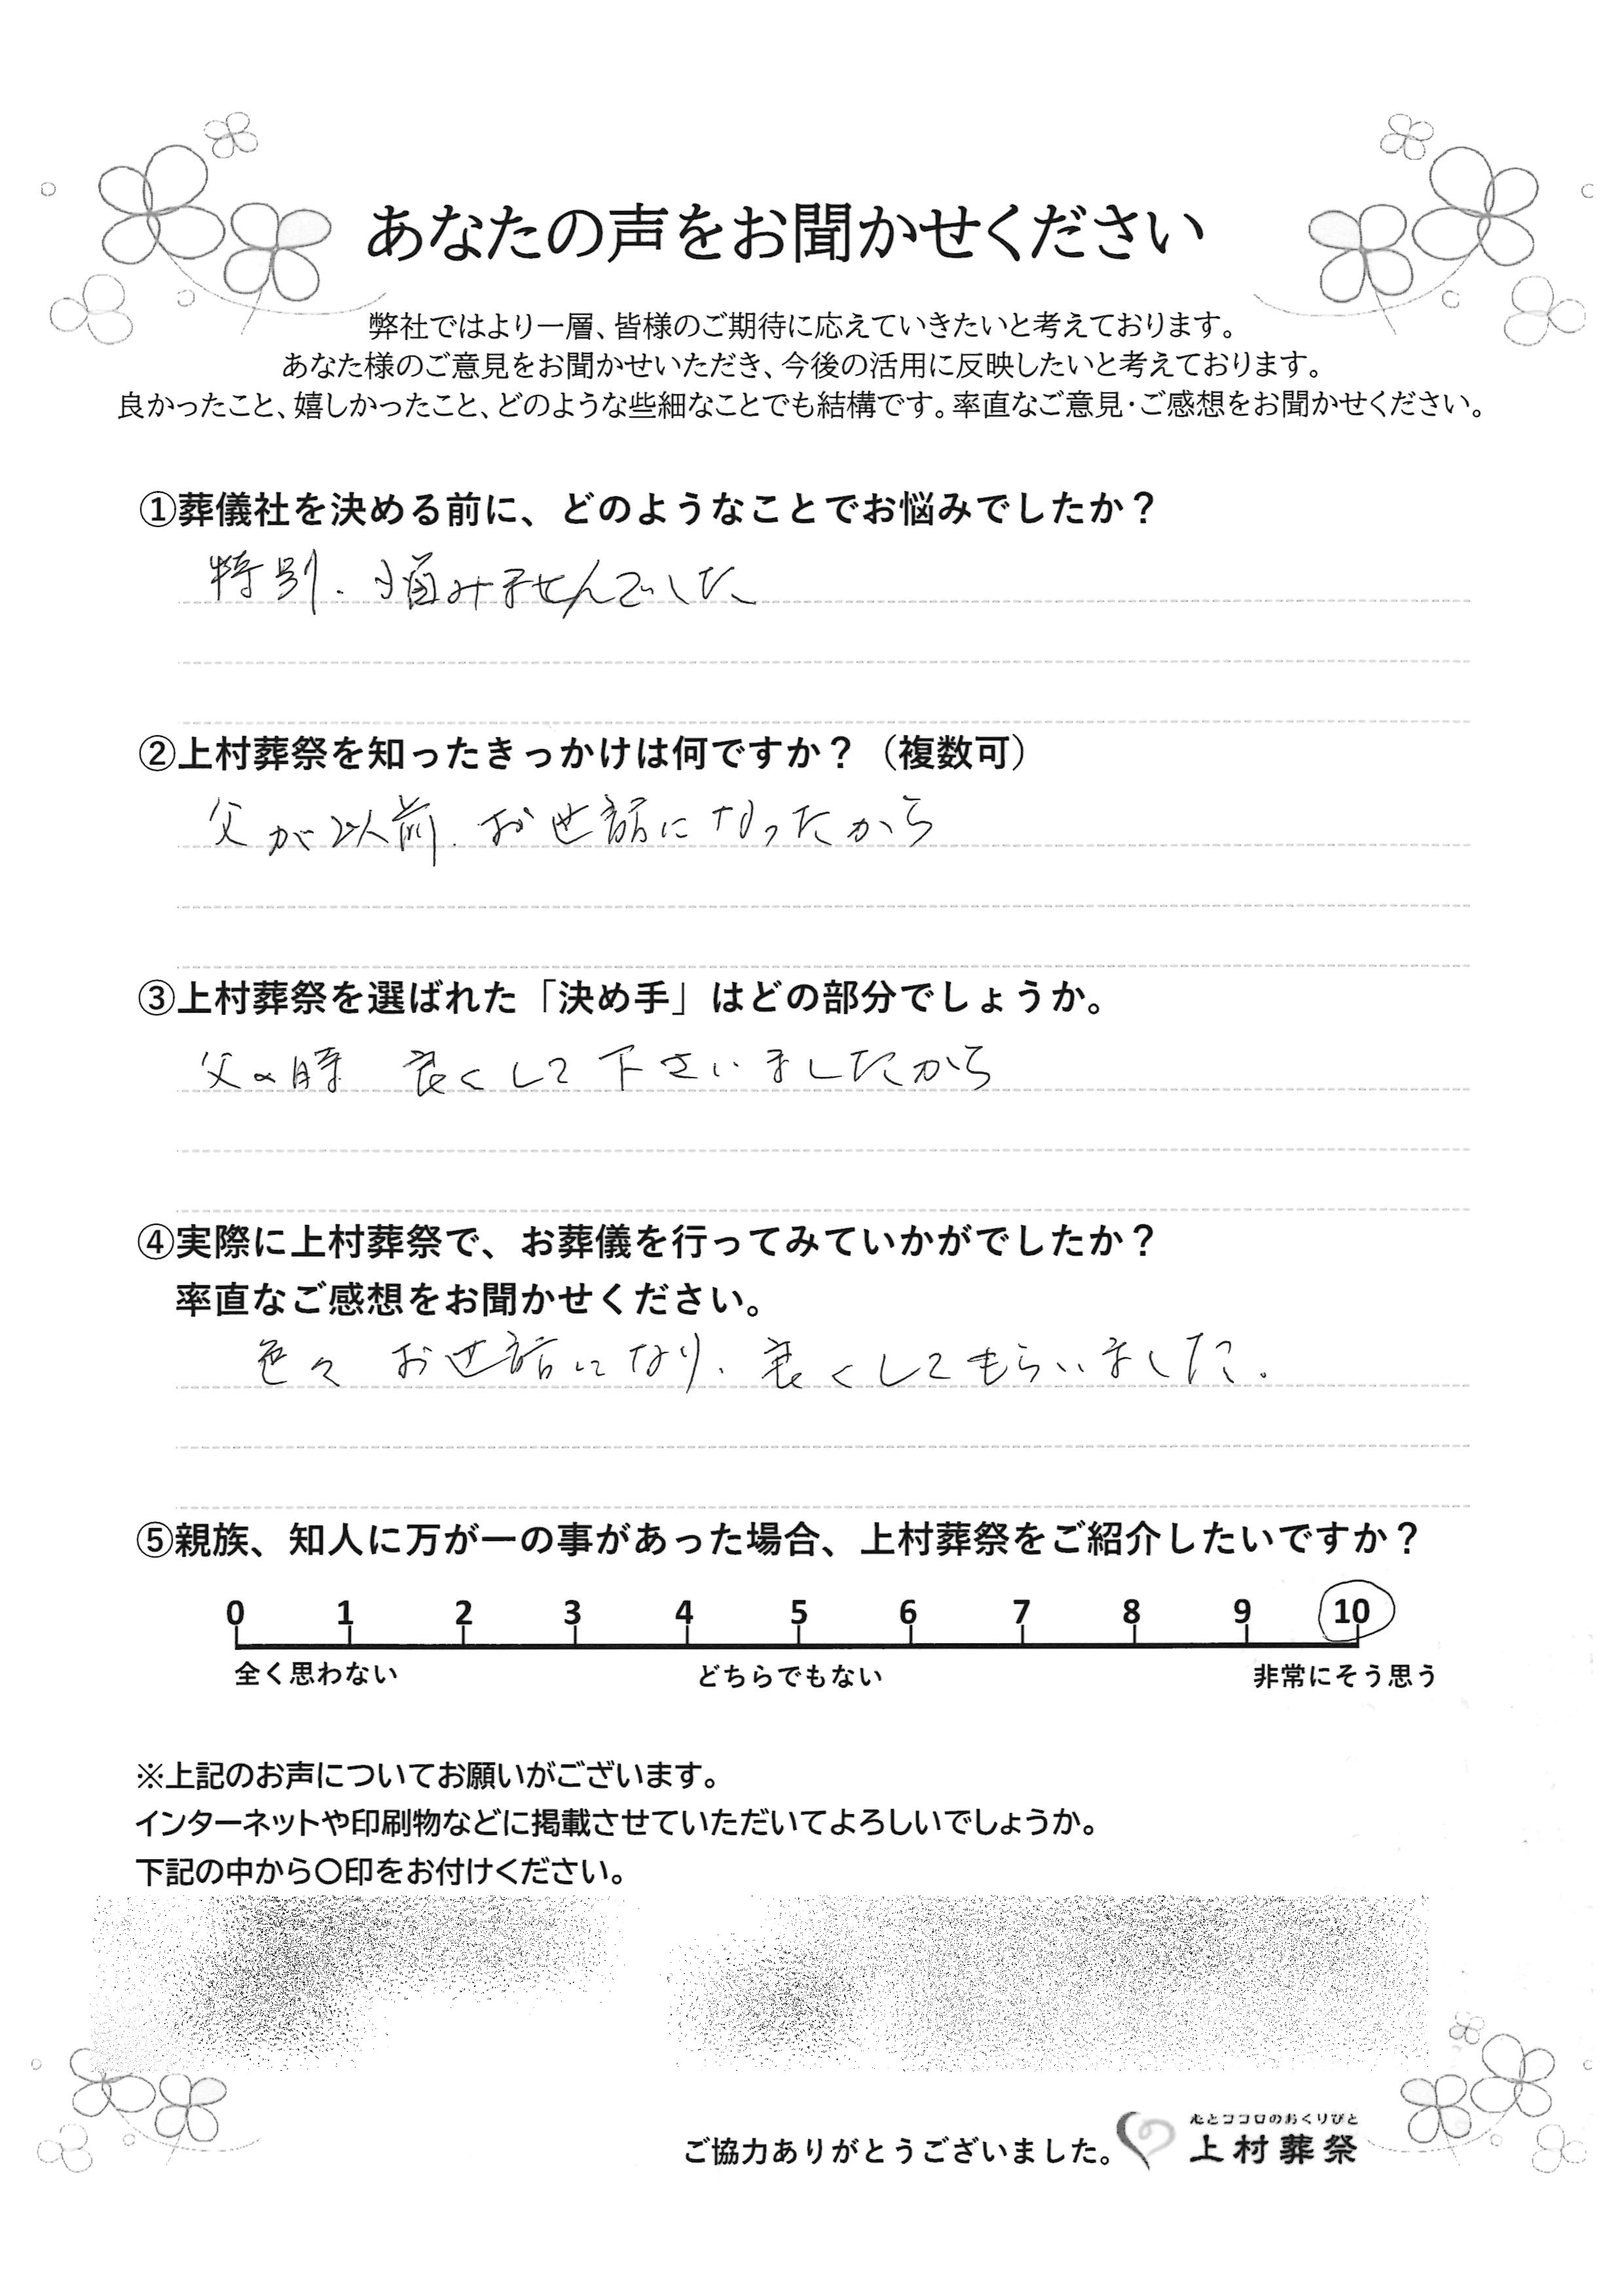 あなたの声をお聞かせください
弊社ではより一層、皆様のご期待に応えていきたいと考えております。
あなた様のご意見をお聞かせいただき、今後の活用に反映したいと考えております。
良かったこと、嬉しかったこと、どのような些細なことでも結構です。率直なご意見・ご感想をお聞かせください。
①葬儀社を決める前に、どのようなことでお悩みでしたか？
特別.悩みませんでした
②上村葬祭を知ったきっかけは何ですか？（複数可）
父が以前.お世話になったから
③上村葬祭を選ばれた「決め手」はどの部分でしょうか。
父の時 良くして下さいましたから
④実際に上村葬祭で、お葬儀を行ってみていかがでしたか？
率直なご感想をお聞かせください。
色々 お世話になり、良くしてもらいました.
⑤親族、知人に万が一の事があった場合、上村葬祭をご紹介したいですか？
0 1 2 3 4 5 6 7 8 9 10
全く思わない どちらでもない 非常にそう思う
※上記のお声についてお願いがございます。
インターネットや印刷物などに掲載させていただいてよろしいでしょうか。
下記の中から〇印をお付けください。
心とココロのおくりびと
ご協力ありがとうございました。 上村葬祭